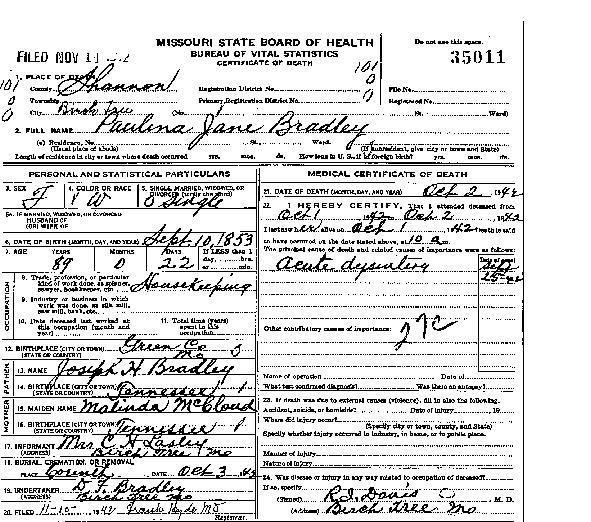 MISSOURI STATE BOARD OF HEALTH
BUREAU OF VITAL STATISTICS
CERTIFICATE OF DEATH
Do not use this space.
35011
FILED NOV 1
1. PLACE OF DEATH
County Shannon
Registration District No. 101
File No.
Township
Primary Registration District No.
Registered No.
City Birch Tree
No.
St.
Ward)
2. FULL NAME Paulina Jane Bradley
(a) Residence, No.
St.
Ward.
(Usual place of abode)
(If nonresident, give city or town and State)
Length of residence in city or town where death occurred yrs. mos. ds. How long in U. S., if of foreign birth? yrs. mos. ds.
PERSONAL AND STATISTICAL PARTICULARS
3. SEX F
4. COLOR OR RACE W
5. SINGLE, MARRIED, WIDOWED, OR DIVORCED (write the word) Single
5a. IF MARRIED, WIDOWED, OR DIVORCED
HUSBAND OF
(OR) WIFE OF
6. DATE OF BIRTH (MONTH, DAY, AND YEAR) Sept. 10, 1853
7. AGE YEARS MONTHS DAYS If LESS than 1
89 0 22
day, hrs.
or min.
OCCUPATION
8. Trade, profession, or particular kind of work done, as spinner, sawyer, bookkeeper, etc. Housekeeping
9. Industry or business in which work was done, as silk mill, saw mill, bank, etc.
10. Date deceased last worked at this occupation (month and year)
11. Total time (years) spent in this occupation
12. BIRTHPLACE (CITY OR TOWN) Green Co
(STATE OR COUNTRY) Mo
FATHER
13. NAME Joseph H. Bradley
14. BIRTHPLACE (CITY OR TOWN)
(STATE OR COUNTRY) Tennessee
MOTHER
15. MAIDEN NAME Malinda McCloud
16. BIRTHPLACE (CITY OR TOWN)
(STATE OR COUNTRY) Tennessee
17. INFORMANT Mrs. C. H. Lasley
(ADDRESS) Birch Tree Mo
18. BURIAL, CREMATION, OR REMOVAL
PLACE Corinth DATE Oct 3
19. UNDERTAKER D. F. Bradley
(ADDRESS) Birch Tree Mo
20. FILED 11-10- 1942 Frank Hyde MD
Registrar.
MEDICAL CERTIFICATE OF DEATH
21. DATE OF DEATH (MONTH, DAY, AND YEAR) Oct 2 1942
22. I HEREBY CERTIFY, That I attended deceased from
Oct 1 1942 Oct 2 1942
I last saw alive on Oct 1 1942 death is said
to have occurred on the date stated above, at 10 a m.
The principal cause of death and related causes of importance were as follows:
Date of onset
Acute dysentery
Other contributory causes of importance: 27c
Name of operation Date of
What test confirmed diagnosis? Was there an autopsy?
23. If death was due to external causes (violence), fill in also the following:
Accident, suicide, or homicide? Date of injury 19
Where did injury occur?
(Specify city or town, county, and State)
Specify whether injury occurred in industry, in home, or in public place.
Manner of injury
Nature of injury
24. Was disease or injury in any way related to occupation of deceased?
If so, specify
(Signed) R. I. Davis M. D.
(Address) Birch Tree Mo